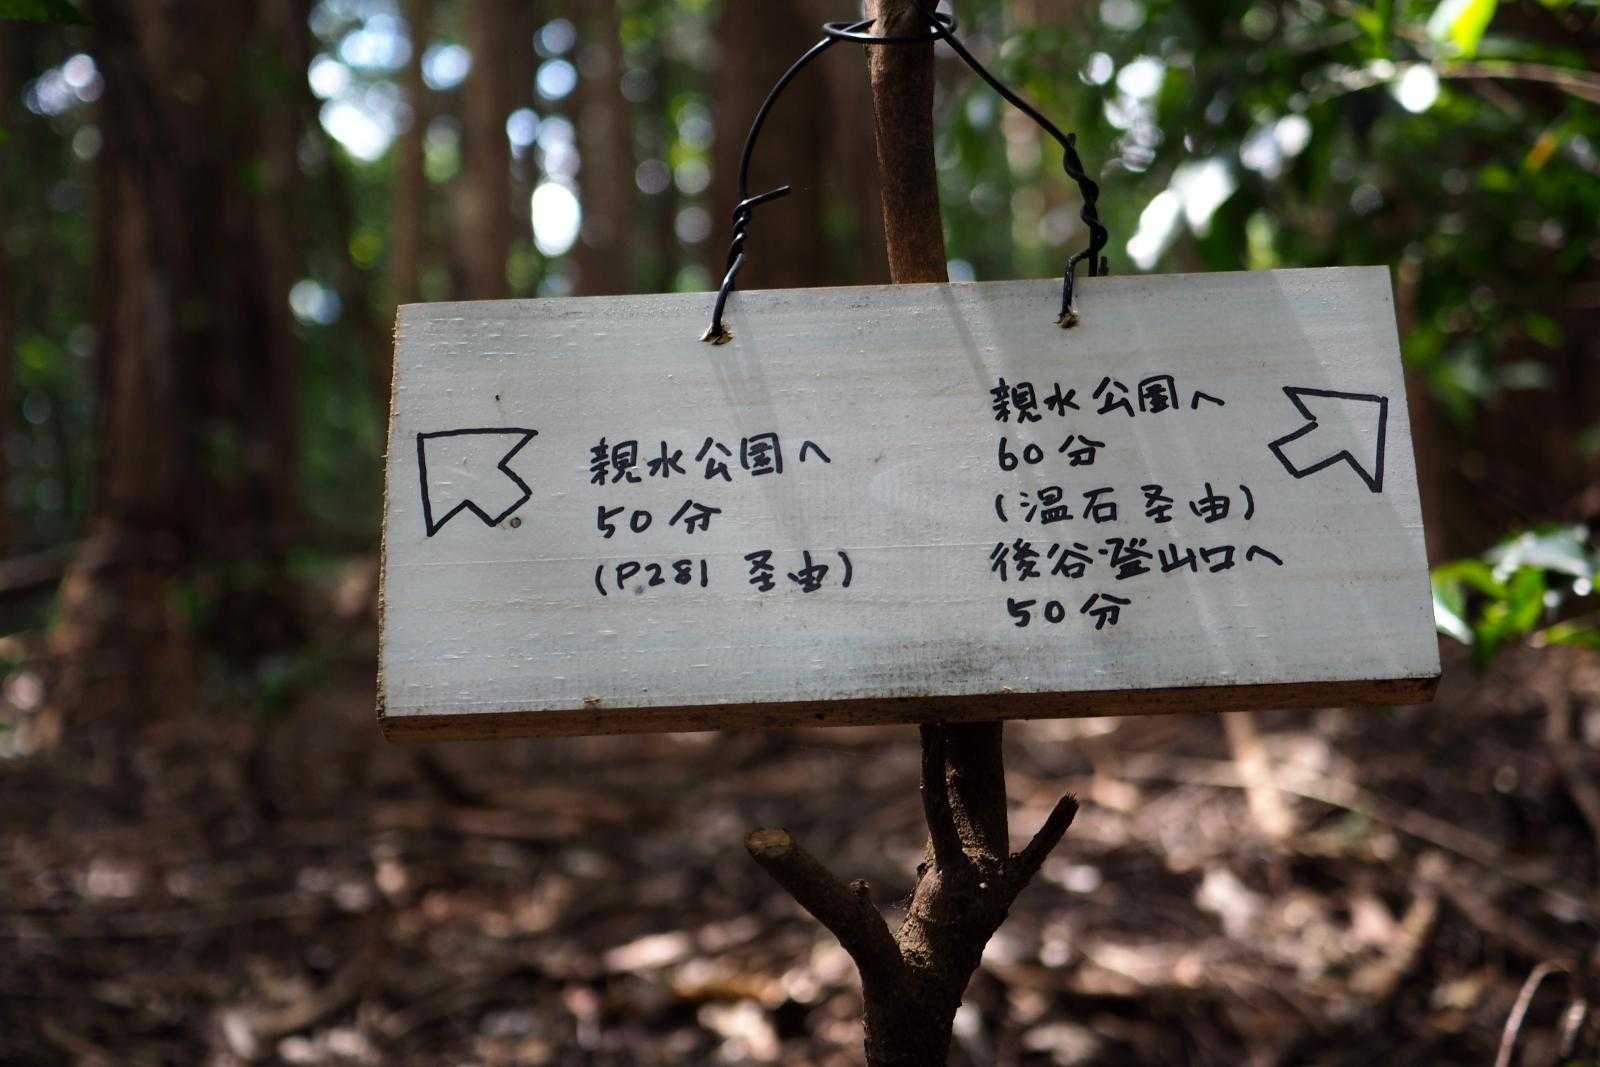 親水公園へ
50分
(P281 圣由)
親水公園へ
60分
(温石 圣由)
後谷登山口へ
50分